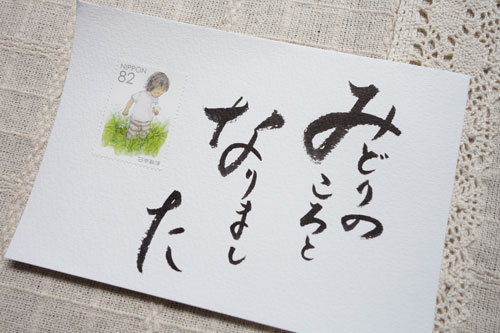 みどりの
ころと
なりまし
た
NIPPON
82
日本郵便